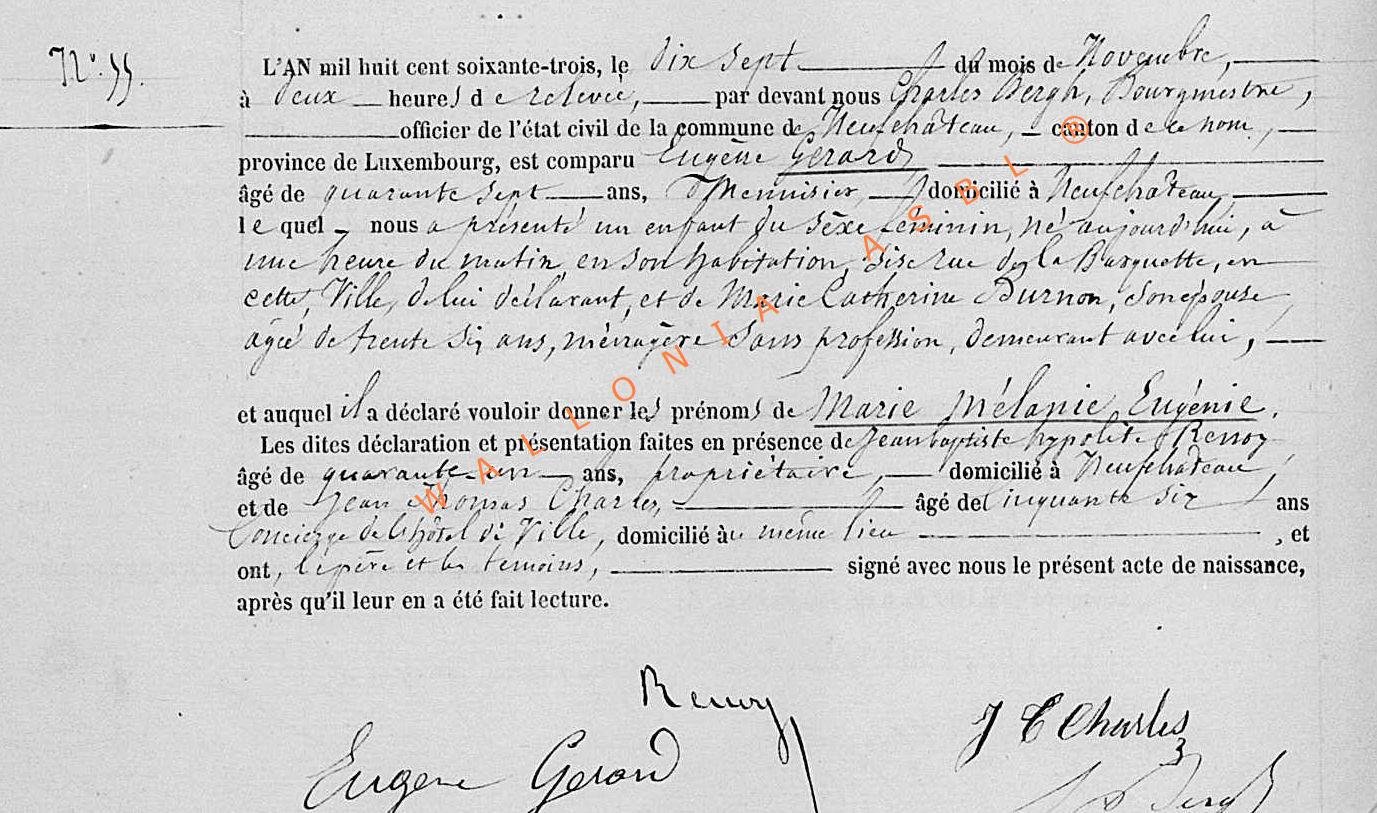 N° 55.
L'AN mil huit cent soixante-trois, le dix sept du mois de Novembre,
à deux heures de relevée, par devant nous Charles Bergh, Bourgmestre,
officier de l'état civil de la commune de Neufchâteau, canton de ce nom,
province de Luxembourg, est comparu Eugène Gérard
âgé de quarante sept ans, Menuisier, domicilié à Neufchâteau,
lequel nous a présenté un enfant du sèxe féminin, né aujourd'hui, à
une heure du matin, en son habitation, sise rue de la Barquette, en
cette Ville, de lui déclarant, et de Marie Catherine Burnon, son épouse
âgée de trente six ans, ménagère sans profession, demeurant avec lui,
et auquel il a déclaré vouloir donner les prénoms de Marie Mélanie Eugénie.
Les dites déclaration et présentation faites en présence de Jean baptiste hypolite Renoy
âgé de quarante-un ans, propriétaire, domicilié à Neufchâteau,
et de Jean Thomas Charles, âgé de Cinquante six ans
Concierge de l'hôtel de Ville, domicilié au même lieu, et
ont, le père et les temoins, signé avec nous le présent acte de naissance,
après qu'il leur en a été fait lecture.
Renoy
J T Charles
Eugene Gerard
WALLONIA ASBL ®